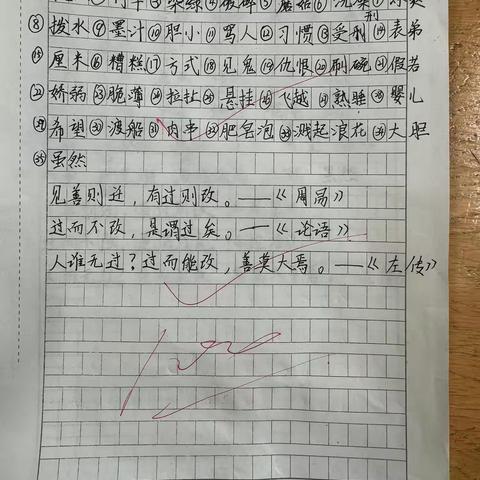 ③染绿④破碎⑤蘑菇⑥
⑧拨水⑨墨汁⑩胆小⑪骂人⑫习惯⑬受刑⑭表弟
⑮厘米⑯糟糕⑰方式⑱见鬼⑲仇恨⑳刷碗㉑假若
㉒娇弱㉓脆薄㉔拉扯㉕悬挂㉖飞越㉗熟睡㉘婴儿
㉙希望㉚渡船㉛肉串㉜肥皂泡㉝溅起浪花㉞大胆
㉟虽然
见善则迁，有过则改。——《周易》
过而不改，是谓过矣。——《论语》
人谁无过？过而能改，善莫大焉。——《左传》
100